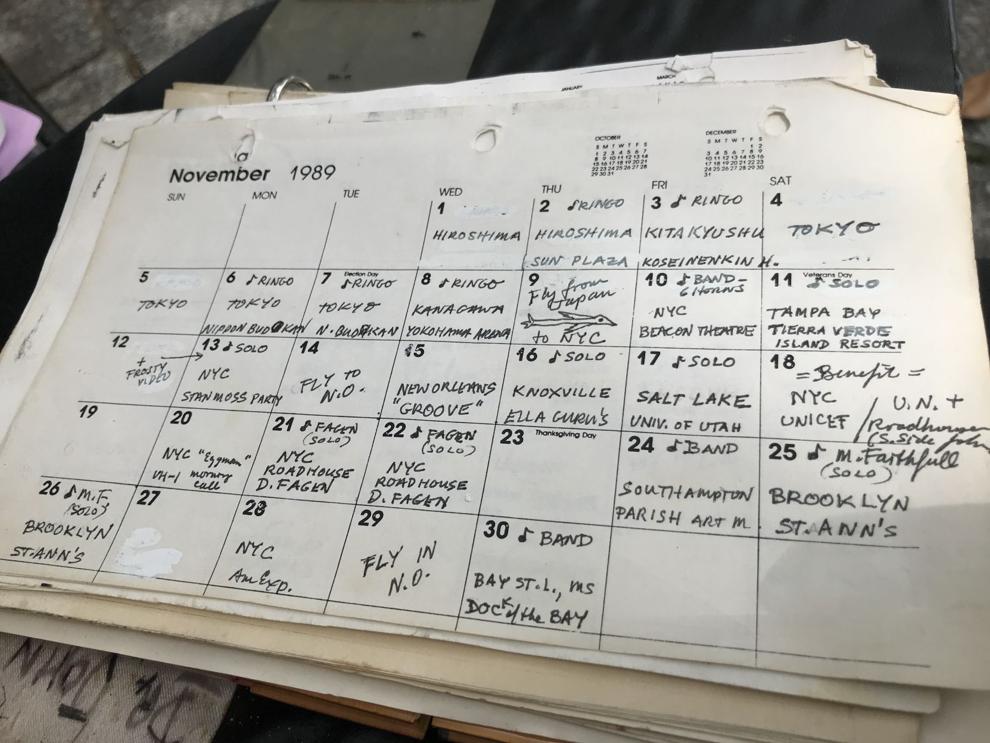 OCTOBER
S M T W T F S
1 2 3 4 5 6 7
8 9 10 11 12 13 14
15 16 17 18 19 20 21
22 23 24 25 26 27 28
29 30 31
DECEMBER
S M T W T F S
1 2
3 4 5 6 7 8 9
10 11 12 13 14 15 16
17 18 19 20 21 22 23
24 25 26 27 28 29 30
31
JANUARY
MARCH
November 1989
SUN MON TUE WED THU FRI SAT
1
HIROSHIMA
2 ♪RINGO
HIROSHIMA
SUN PLAZA
3 ♪ RINGO
KITAKYUSHU
KOSEINENKIN H.
4
TOKYO
5
TOKYO
6 ♪RINGO
TOKYO
NIPPON BUDOKAN
7 Election Day
♪RINGO
TOKYO
N. BUDOKAN
8 ♪RINGO
KANAGAWA
YOKOHAMA ARENA
9
Fly from
Japan
to NYC
10 ♪BAND-
6 HORNS
NYC
BEACON THEATRE
11 Veterans Day
♪SOLO
TAMPA BAY
TIERRA VERDE
ISLAND RESORT
12
+
FROSTY
VIDEO
13 ♪SOLO
NYC
STAN MOSS PARTY
14
FLY TO
N.O.
15
NEW ORLEANS
"GROOVE"
16 ♪SOLO
KNOXVILLE
ELLA GURU'S
17 ♪SOLO
SALT LAKE
UNIV. OF UTAH
18
=Benefit=
NYC
UNICEF
U.N. +
(S.Side John
19
20
NYC "Eggman"
VH-1 morning
call
21 ♪FAGEN
(SOLO)
NYC
ROADHOUSE
D.FAGEN
22 ♪FAGEN
(SOLO)
NYC
ROADHOUSE
D. FAGEN
23 Thanksgiving Day
24 ♪BAND
SOUTHAMPTON
PARISH ART M.
25 ♪ M. Faithfull
(SOLO)
BROOKLYN
ST. ANN'S
26 ♪M.F.
(SOLO)
BROOKLYN
ST. ANN'S
27
28
NYC
Am Exp.
29
FLY IN
N.O.
30 ♪ BAND
BAY ST. L., MS
DOCK of the BAY
DR. JOHN